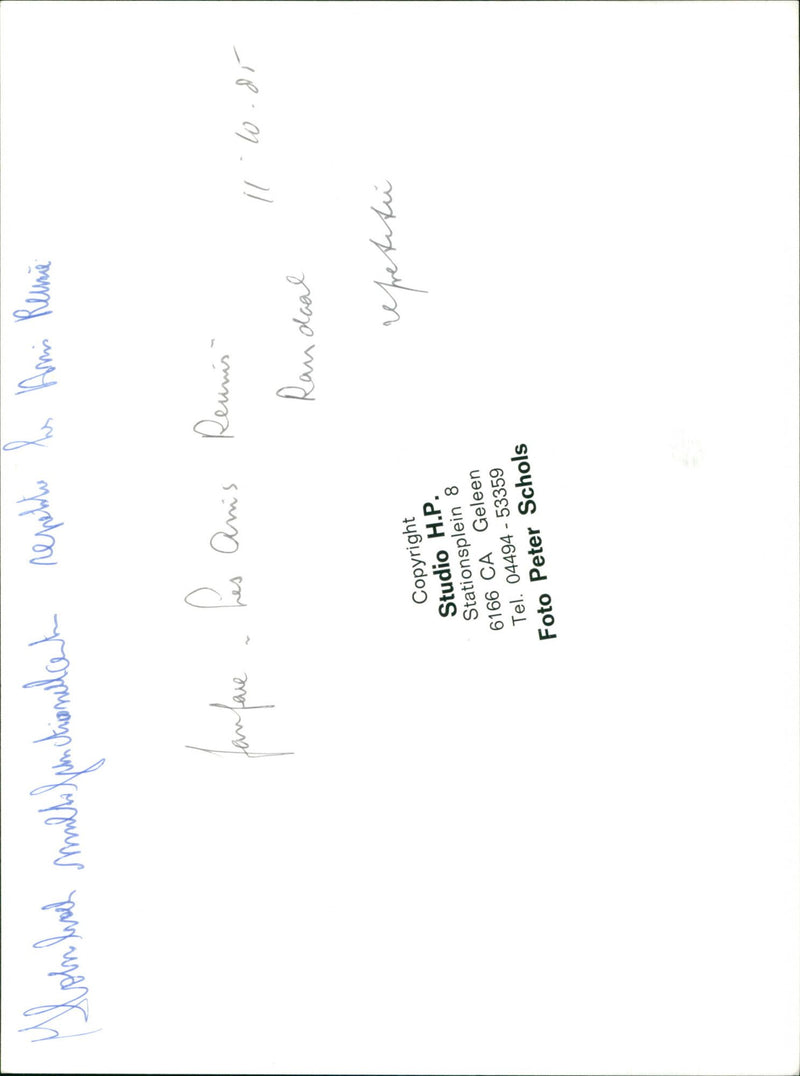 multifunctioneel centr repetitie Les Amis Reunis
fanfare - Les Amis Reunis 11-10-85
Ransdaal
repetitie
Copyright
Studio H.P.
Stationsplein 8
6166 CA Geleen
Tel. 04494 - 53359
Foto Peter Schols